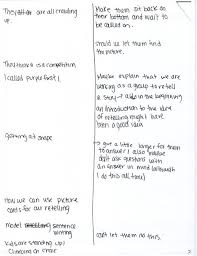 They all are all crawling
up.
Make them sit back on
their bottom and wait to
be called on.
Should we let them find
the picture.
That track is a competition
I called purple first!
Maybe explain that we are
working as a group to retell
a story - also in the beginning
an introduction to the idea
of retelling might have
been a good idea
getting at shape
a little longer for them
to answer I also
don't ask questions with
an answer in mind (although
I do this too)
How we can use picture
cards for our retelling
Model sentence
writing
Kids are standing up/
climbing on chair
can't let them do this.